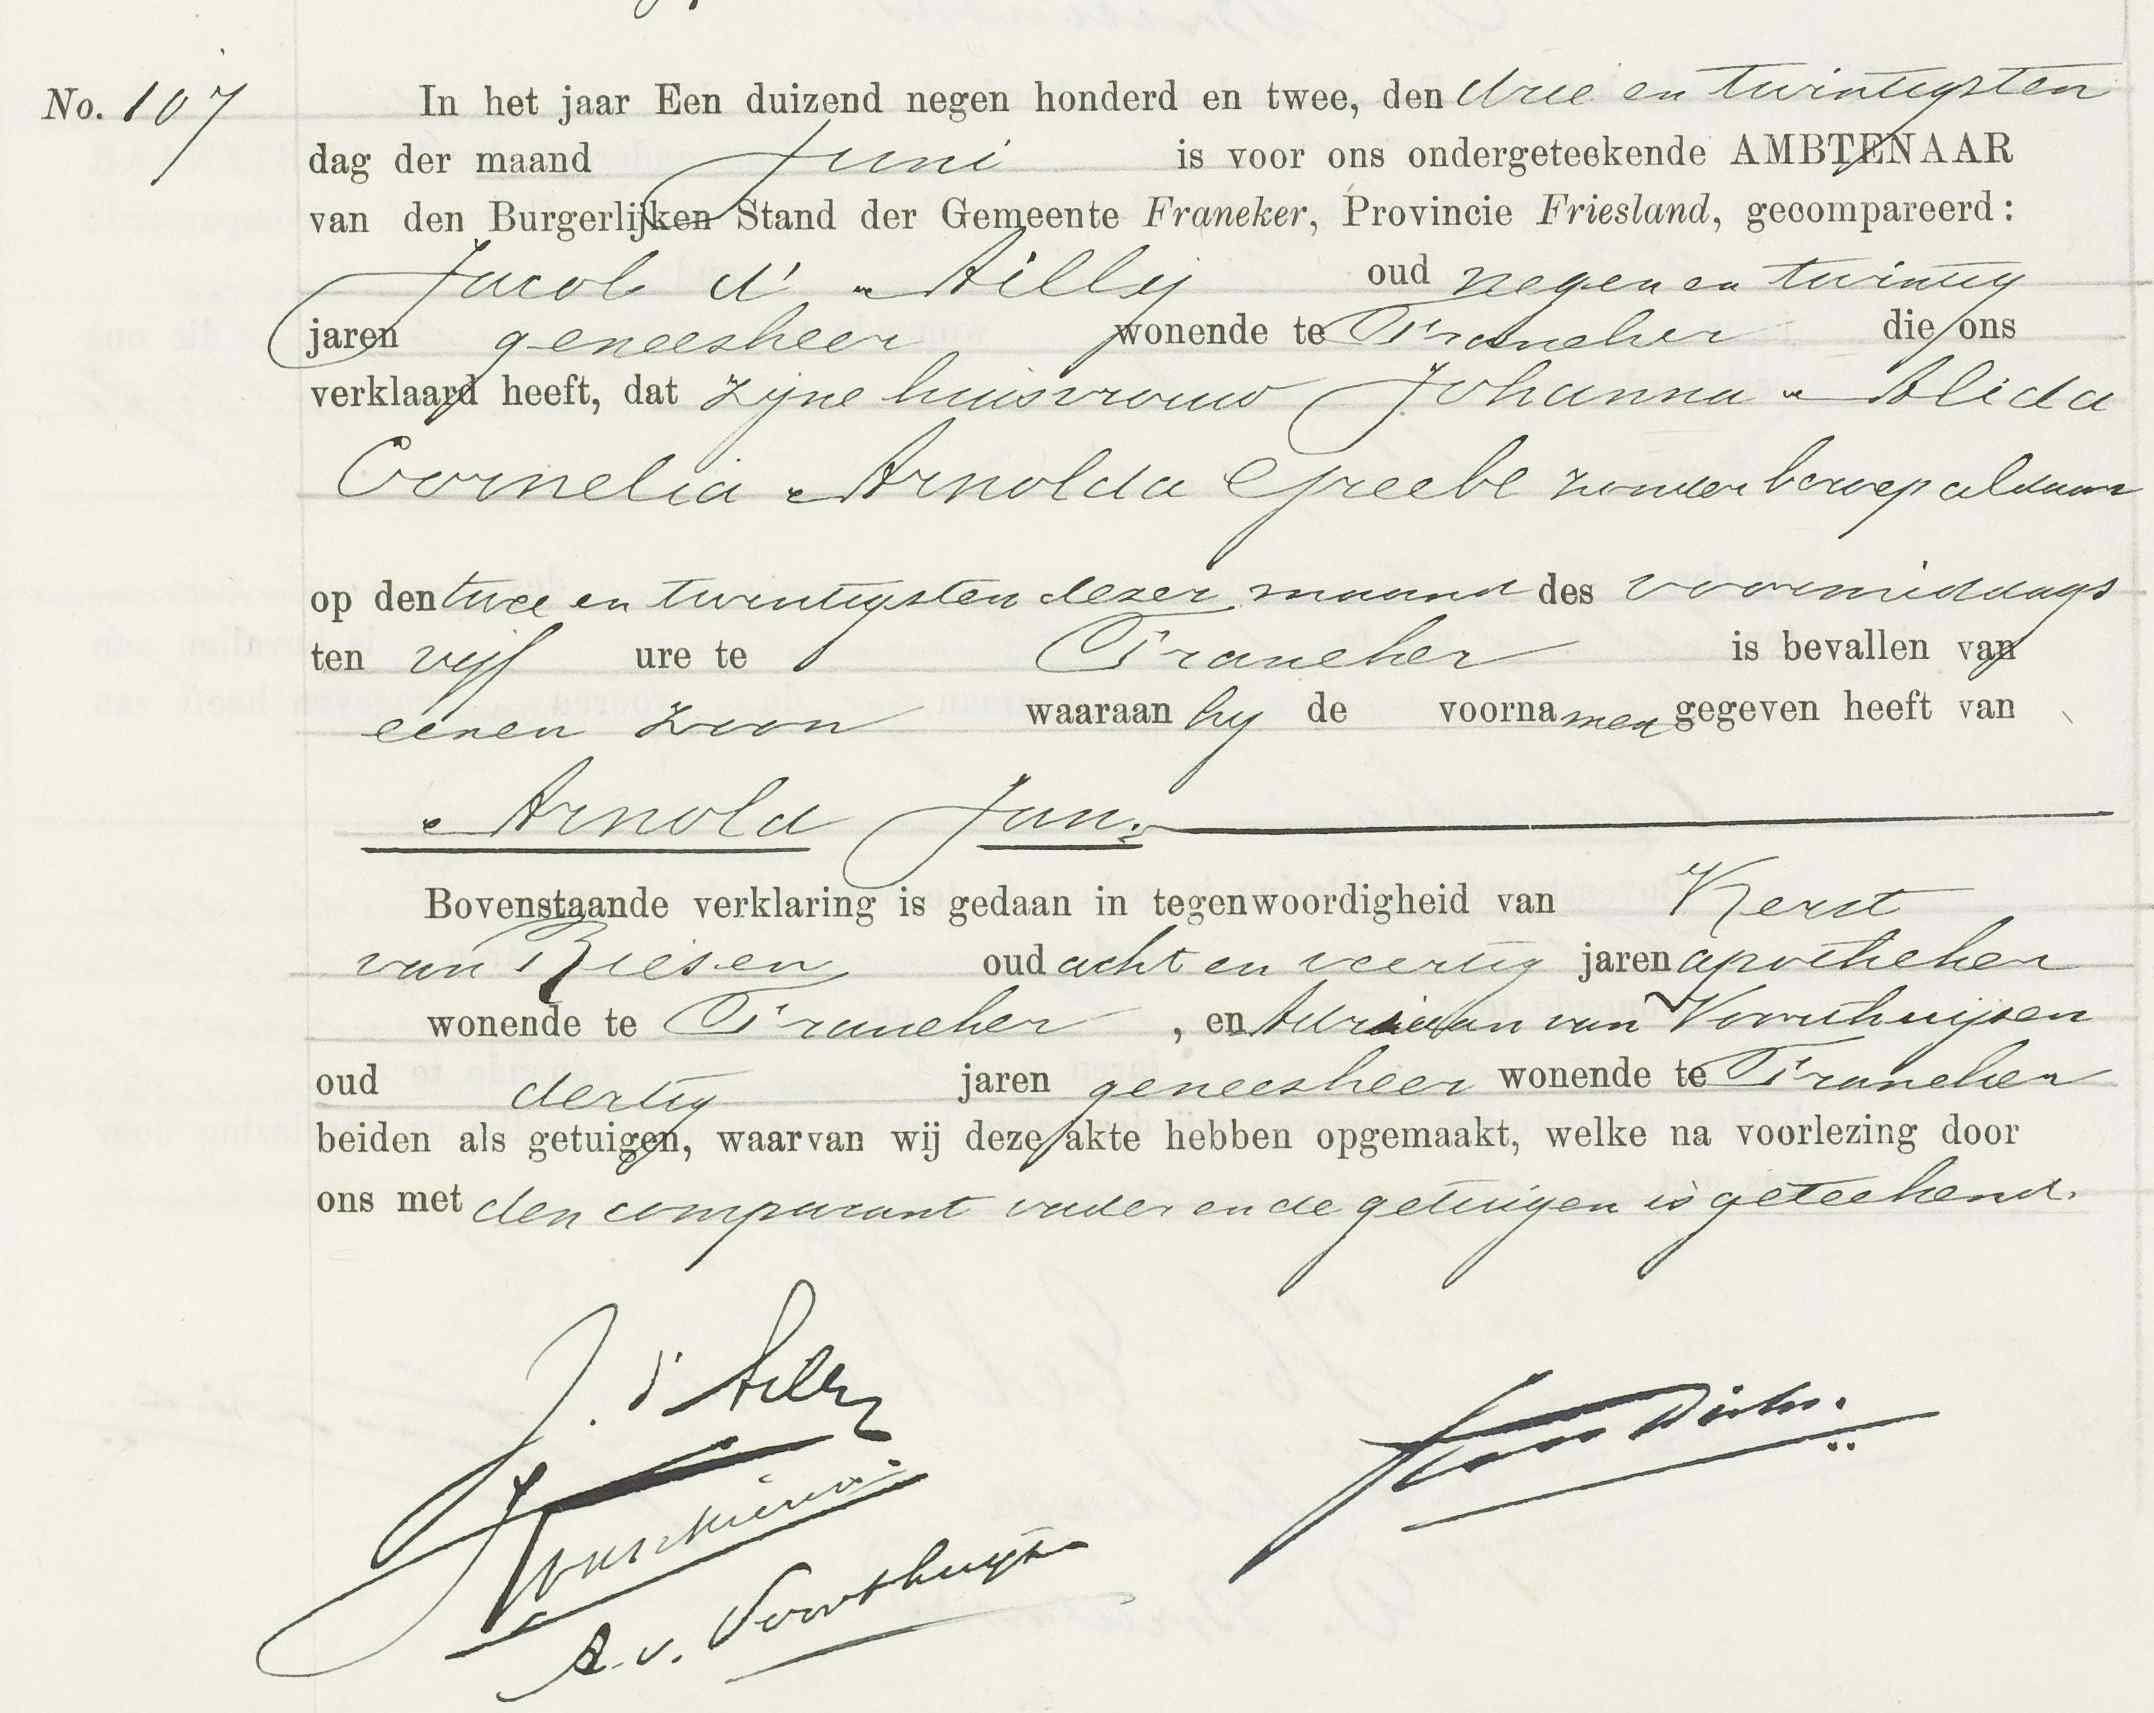 No. 107
In het jaar Een duizend negen honderd en twee, den drie en twintigsten
dag der maand Juni is voor ons ondergeteekende AMBTENAAR
van den Burgerlijken Stand der Gemeente Franeker, Provincie Friesland, gecompareerd:
Jacob d'Ailly oud negen en twintig
jaren geneesheer wonende te Franeker die ons
verklaard heeft, dat zijne huisvrouw Johanna Alida
Cornelia Arnolda Greebe zonder beroep aldaar
op den twee en twintigsten dezer maand des voormiddags
ten vijf ure te Franeker is bevallen van
eenen zoon waaraan hij de voornamen gegeven heeft van
Arnold Jan.
Bovenstaande verklaring is gedaan in tegenwoordigheid van Kerst
van Riesen oud acht en veertig jaren apotheker
wonende te Franeker, en Adriaan van Voorthuijsen
oud dertig jaren geneesheer wonende te Franeker
beiden als getuigen, waarvan wij deze akte hebben opgemaakt, welke na voorlezing door
ons met den comparant vader en de getuigen is geteekend.
J. d'Ailly
A. v. Voorthuijsen